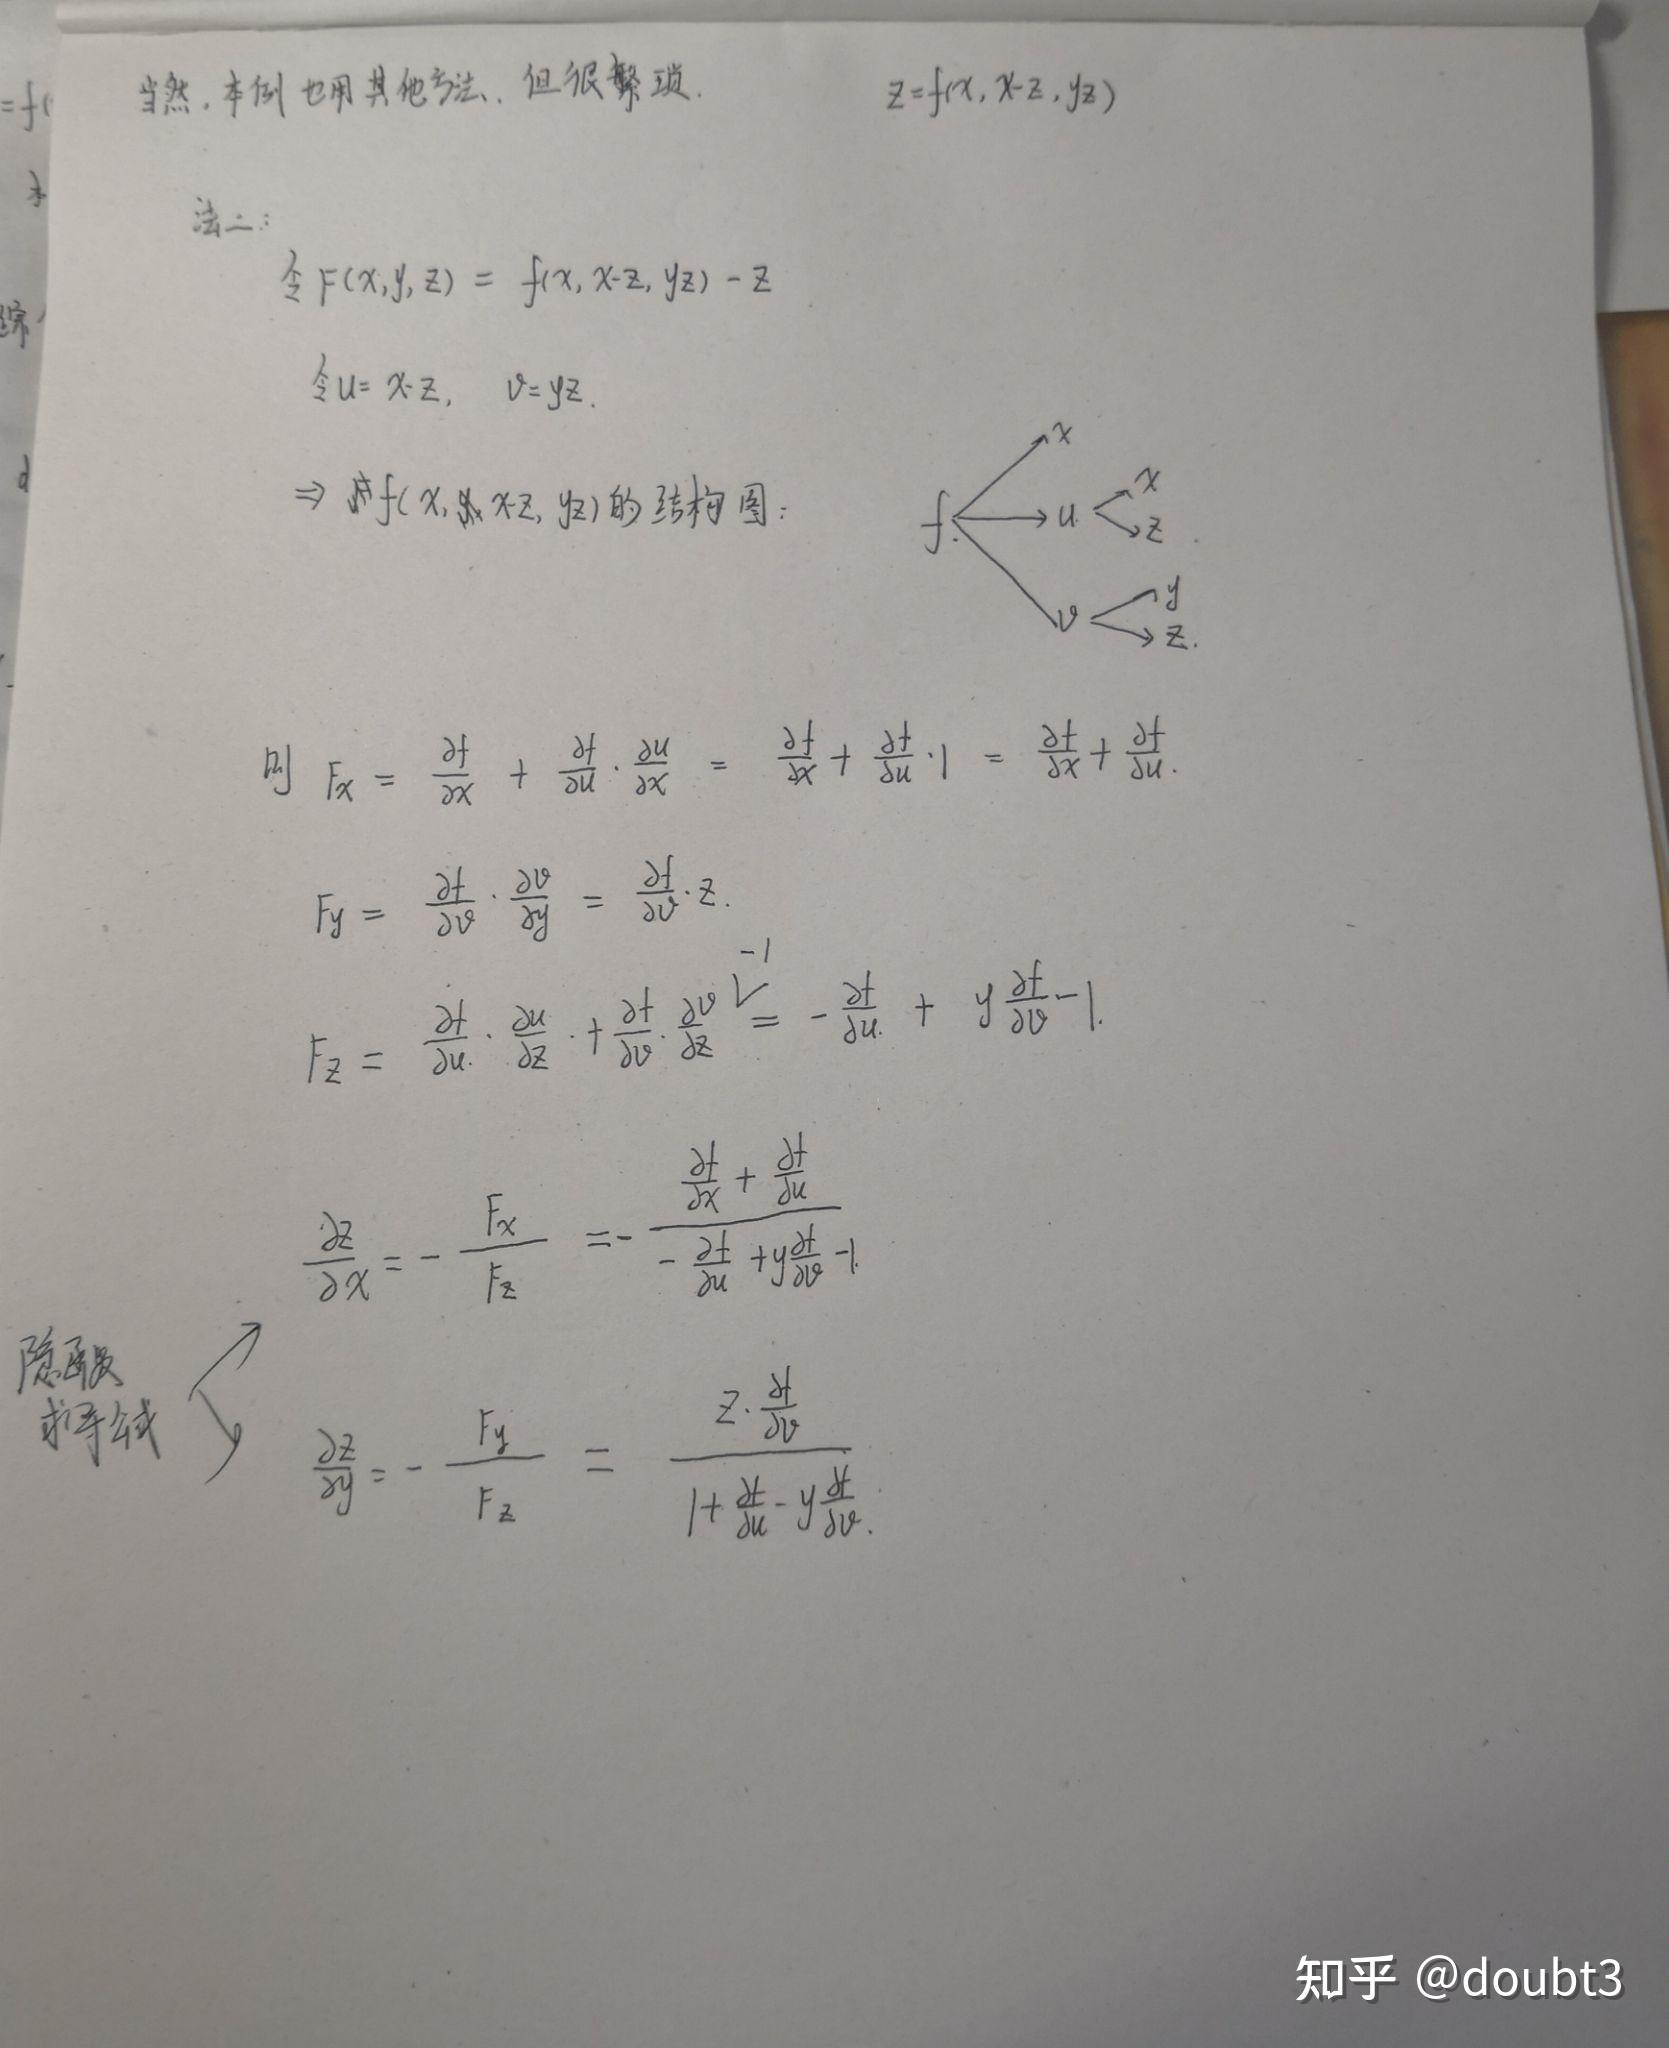 当然,本例也用其他方法,但很繁琐. z=f(x, x-z, yz)
法二:
令 F(x,y,z) = f(x, x-z, yz) - z
令u= x-z, v=yz.
⇒ f(x, x-z, yz)的结构图:
x
f. u x z
v y z.
则 Fx = ∂f/∂x + ∂f/∂u · ∂u/∂x = ∂f/∂x + ∂f/∂u · 1 = ∂f/∂x + ∂f/∂u.
Fy = ∂f/∂v · ∂v/∂y = ∂f/∂v · z.
Fz = ∂f/∂u · ∂u/∂z + ∂f/∂v · ∂v/∂z -1 = - ∂f/∂u + y ∂f/∂v - 1.
∂z/∂x = - Fx/Fz = - (∂f/∂x + ∂f/∂u)/(- ∂f/∂u + y ∂f/∂v - 1)
隐函数
求导公式
∂z/∂y = - Fy/Fz = (z · ∂f/∂v)/(1 + ∂f/∂u - y ∂f/∂v).
知乎 @doubt3